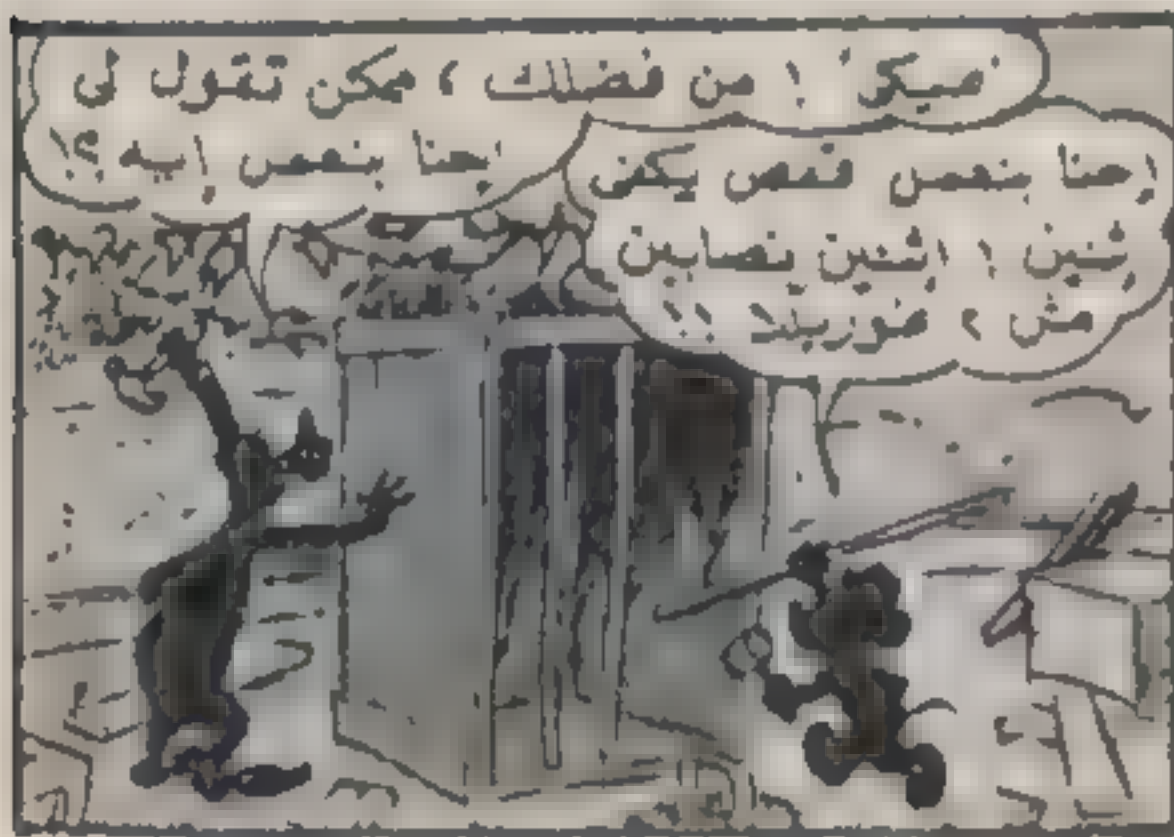 ميكى ! من فضلك ، ممكن تقول لى
إحنا بنعمل إيه ؟!
إحنا بنعمل قفص يكفى
إثنين ! اثنين نصابين
مش ؟